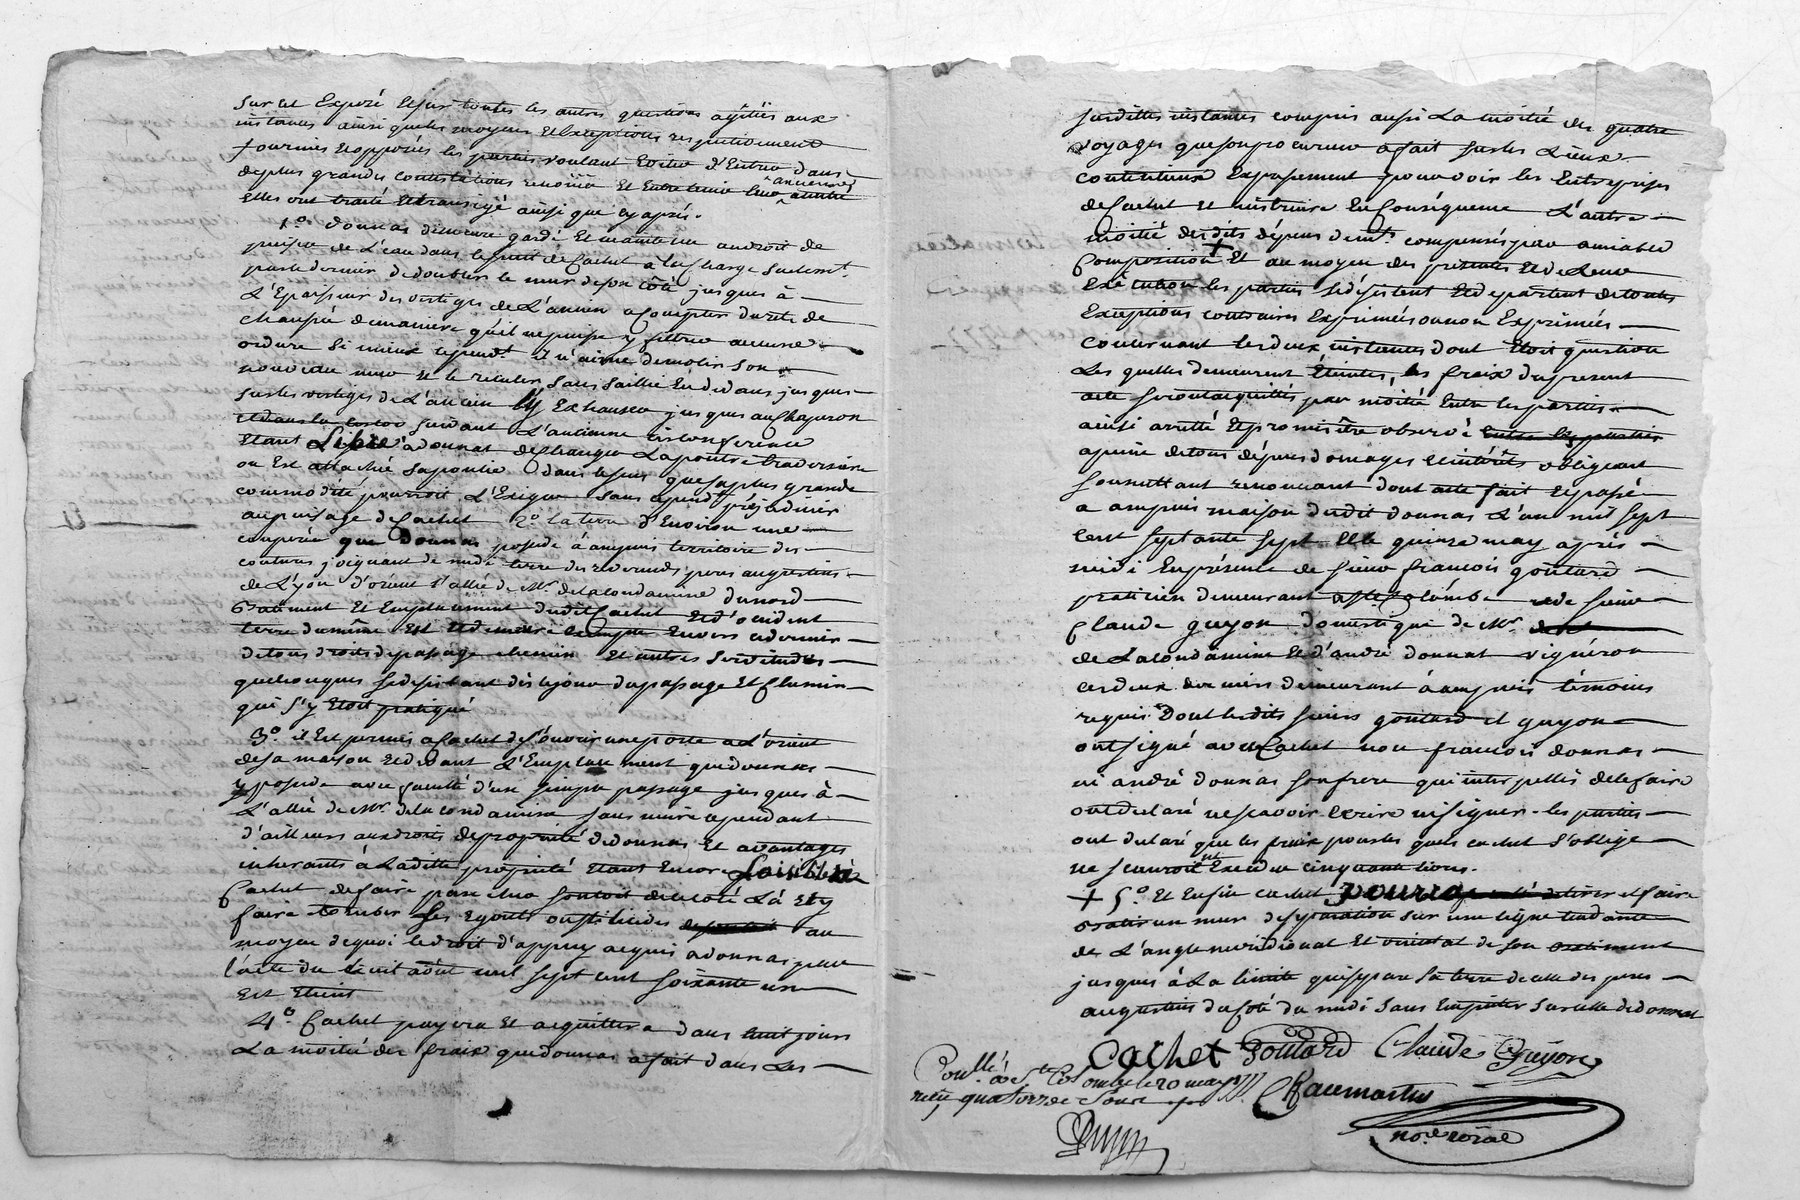 Sur cet Exposé Et sur toutes les autres questions agitées aux
instances ainsi que les moyens Et Exceptions respectivement
fournies Et opposés les parties voulant Eviter d'Entrer dans
de plus grandes contestations renoüer Et Entretenir leur ancienne amitié
Elles ont traité Et transigé ainsi que cy après.
1.° donnas demeure gardé Et maintenu au droit de
puiser de L'eau dans le puit de Cachet à la Charge seulemt.
par le dernier de doubler le mur de son côté jusques à
L'Epaisseur des vestiges de L'ancien a Compter du rit de
chaussée de maniere qu'il ne puisse y filtrer aucune
ordure si mieux cependt. il n'aime demolir son
nouveau mur Et le reculer sans saillie En dedans jusques
sur les vestiges de L'ancien Et y Exhausser jusques au Chaperon
suivant L'ancienne circonference
Etant Libre à donnat de changer La poutre traversière
ou Est attaché sa poulie dans le sens que sa plus grande
commodité pourroit L'Exiger sans cepend. préjudicier
au puisage de Cachet 2.° la terre d'Environ une
coupée que donnas possede à ampuis territoire des
coutures joignant de midi terre des reverends peres augustins
de Lyon d'orient l'allée de Mr. de la Condamine du nord
Batiment Et Emplacement dudit Cachet Et d'occident
terre du même Est Et demeure Exempte Envers ce dernier
de tous droits de passage chemin Et autres servitudes
quelconques se désistant dès ce jour du passage Et Chemin
qui s'y Etoit pratiqué
3.° il Est permis a Cachet de s'ouvrir une porte a L'orient
de sa maison Et devant L'Emplacement que donnas
y possede avec faculté d'un simple passage jusques à
L'allée de Mr. de la condamine sans nuire cependant
d'ailleurs aux droits de propriété de donnas Et avantages
inherants à Ladite propriété Etant Encore Loisible à
Cachet de faire parachever son toit de ce côté Là Et y
faire tomber Ses Egouts ou stilicides au
moyen de quoi le droit d'appuy acquis a donnas par
l'acte du Six août mil sept cent soixante un
Est Eteint
4.° Cachet payera Et acquittera dans huit jours
La moitié des fraix que donnas a fait dans Les
susdittes instances compris aussi La moitié des quatre
voyages que son procureur a fait sur les Lieux
contentieux Expressement pour voir les Entreprises
de Cachet Et instruire En Conséquence L'autre
moitié desdits dépens demt. compensés par amiable
Composition + Et au moyen des présentes Et de Leur
Exécution les parties se désistent Et departent de toutes
Exceptions contraires Exprimées ou non Exprimées
concernant les deux instances dont Etoit question
Les quelles demeurent Eteintes, les fraix du present
acte seront acquittés par moitié Entre les parties
ainsi arrêté Et promis être observé
apeine de tous dépens domages Et intérêts obligeant
soumettant renonçant dont acte fait Et passé
a ampuis maison dudit donnas L'an mil sept
cent septante sept Et le quinze may après
midi En présence de sieur françois goutard
praticien demeurant a Ste Colombe de sieur
Claude guyon domestique de Mr.
de La Condamine Et d'andré donnat vigneron
ces deux derniers demeurant à ampuis témoins
requis Dont lesdits sieurs goutard et guyon
ont signé avec Cachet non françois donnas
ni andré donnas son frere qui interpellés de le faire
ont declaré ne scavoir Ecrire ni signer. les parties
ont declaré que les fraix pour les quels cachet s'oblige
ne scauroient Exceder cinquante livres.
+ 5.° Et Enfin cachet pourra et faire
un mur de separation sur une ligne tendante
de L'angle meridional Et oriental de son Batiment
jusques à La limite qui separe sa terre de celle des peres
augustins du coté du midi sans Empieter sur celle de donnat
Cachet Goutard Claude Guyon
Conllé. à Ste Colombe le 20 may 1777.
reçu quatorze sous
Chaumartin
nore. royal